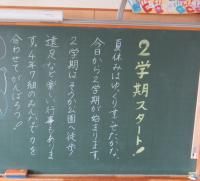 2学期スタート!
夏休みはゆっくりすごせたかな。
今日から2学期が始まります。
2学期はそうか公園へ徒歩
遠足など楽しい行事もありま
す。4年7組のみんなで力を
合わせてがんばろう!